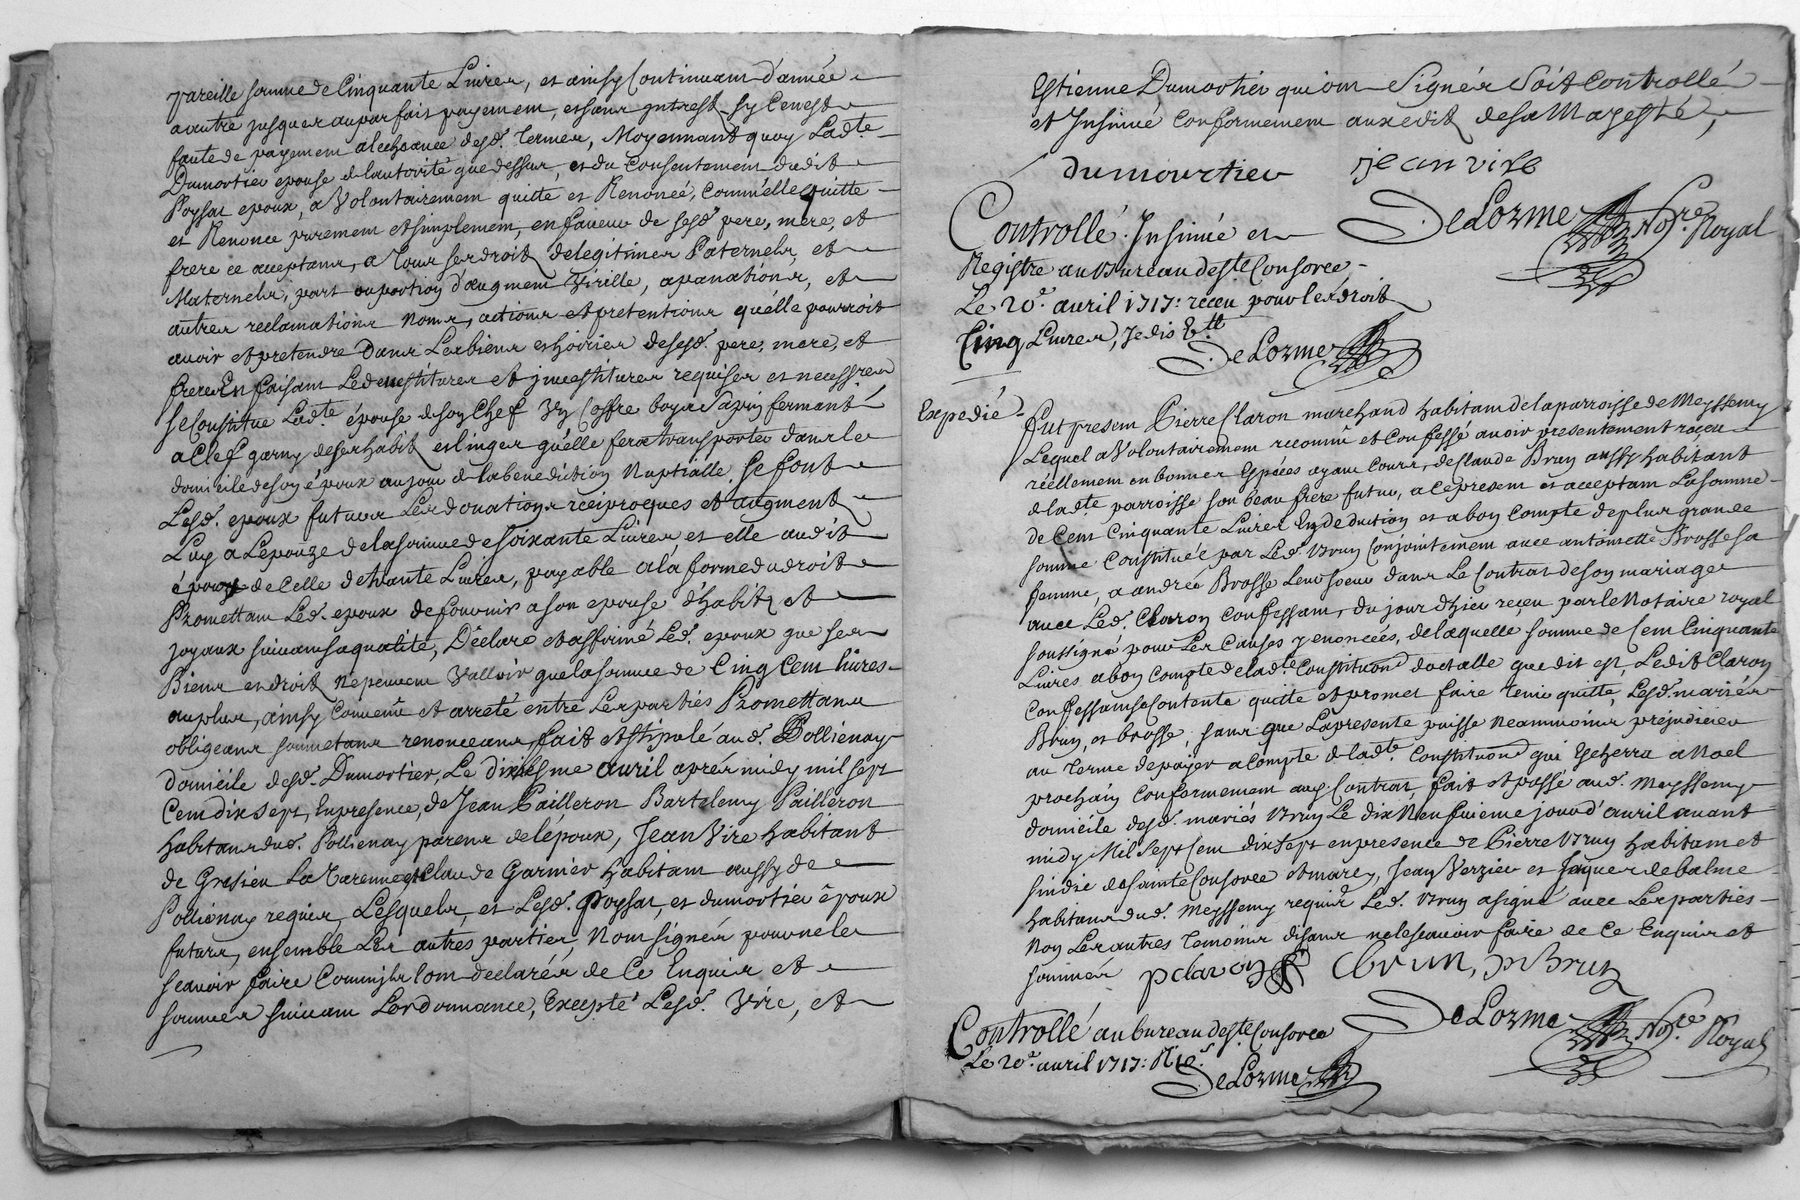 pareille somme de Cinquante Livres, et ainsy Continuant d'année
a autre jusques au parfait payement, et sans jntrest, sy Cenest a
faute de payement a lechéance desd. termes, Moyennant quoy Ladte
Dumortier epouse de lautorité que dessus, et du Consentement dudit
Poysat epoux, a Volontairement quitte et Renoncé, Comm'elle quitte
et Renonce purement et simplement, en faveur de sesd. pere, mere, et
frere ce acceptans, a tous ses droits delegitimes Paternels, et
Maternels, part ou portion d'augment Virille, apanations, et
autres reclamations noms, actions et pretentions qu'elle pourroit
avoir et pretendre dans Les biens et hoiries desesd. pere, mere, et
freres En faisant Les devestitures et jnvestitures requises et necessres
se Constitue Ladte. épouse de son Chef Un Coffre boys Sapin fermant
a Clef garny deses habits et linges qu'elle fera transporter dans le
domicile deson époux au jour de la benediction Nuptialle, se font
Lesd. epoux futurs Les donations reciproques et augment
Luy a Lepouze de la somme de soixante Livres et elle audit
époux de Celle de trante Livres, payable a la forme du droit
Promettant Led. epoux de fournir a son epouse d'habits et
joyaux suivant sa qualité, Déclare et affirmé Led. epoux que ses
Biens et droits ne peuvent Valloir que la somme de Cinq Cent livres
au plus, ainsy Convenû et arreté entre Les parties Promettans
obligeans soumetans renonceans, fait et stipulé aud. Pollienay
domicile desd. Dumortier, Le dixiesme avril aprés midy mil sept
Cent dix sept, En presence, de Jean Pailleron Bartelemy Pailleron
habitans dud. Pollienay parens de lépoux, Jean Vire habitant
de Gresieu La Varenne et Claude Garnier habitant aussy de
Pollienay requis, Lesquels, et Lesd. Poysat, et dumortier époux
futurs, ensemble Les autres parties, N'ont signés pour ne le
sçavoir faire Comm'jls lont declarés de Ce Enquis et
sommés suivant Lordonnance, Excepté Lesd. Vire, et
Estienne Dumortier qui ont Signés Soit Controllé
et Insinué Conformement aux edits desa Majesté,
dumourtier jean vire
DeLorme Nore. Royal
Controllé Insinué et
Registré au Bureau de Ste Consorce
Le 20e. avril 1717: receu pour les droits
Cinq Livres, Je dis 5tt
DeLorme
Expedié
Fut present Pierre Claron marchand habitant de la parroisse de Meyssemy
Lequel a Volontairement reconnû et Confessé avoir presentement receu
reellement en bonnes Espéces ayans Cours, de Claude Brun aussy habitant
de ladte parroisse son beau frere futur, a ce present et acceptant La somme
de Cent Cinquante Livres En deduction et a bon Compte de plus grande
somme Constituée par Led. Brun Conjointement avec antoinette Brosse sa
femme, a andrée Brosse Leur soeur dans Le Contrat de son mariage
avec Led. Claron Confessant, du jour d'hier receu par le Notaire royal
soussigné pour Les Causes y enoncées, de laquelle somme de Cent Cinquante
Livres a bon Compte de ladte Constitution dottalle que dit est, Ledit Claron
Confessant se Contente quitte et promet faire tenir quitte, Lesd. mariés
Brun, et brosse, sans que La presente puisse Neammoins prejudicier
au terme de payer a Compte de ladte. Constitution qui Escherra a Noel
prochain Conformement auy Contrat, fait et passé aud. Meyssemy
domicile desd. mariés Brun Le dix Neufuieme jour d'avril avant
midy Mil Sept Cent dix sept en presence de Pierre Brun habitant et
sindic de Sainte Consorce et marcy, Jean Verzier et Jaques de balme
habitans dud. Meyssemy requis Led. Brun a signé avec Les parties
Non Les autres temoins disans ne le scavoir faire de Ce Enquis et
sommés pclaron Cbrun, P Brun
DeLorme Nore. Royal
Controllé au bureau de Ste. Consorce
Le 20e. avril 1717:
DeLorme